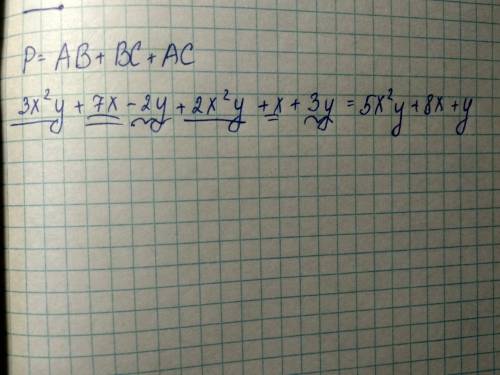 P = AB + BC + AC
3x²y + 7x - 2y + 2x²y + x + 3y = 5x²y + 8x + y